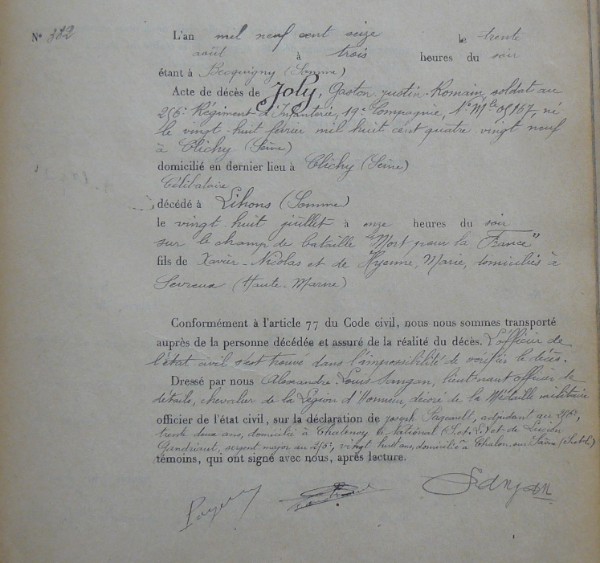 N° 382
L'an mil neuf cent seize le trente
août à trois heures du soir
étant à Becquigny (Somme)
Acte de décès de Joly, Gaston Justin Romain, soldat au
256e Régiment d'Infanterie, 19e Compagnie, N° Mle 05167, né
le vingt huit février mil huit cent quatre vingt neuf
à Clichy (Seine)
domicilié en dernier lieu à Clichy (Seine)
Célibataire
décédé à Lihons (Somme)
le vingt huit juillet à onze heures du soir
sur le champ de bataille "Mort pour la France"
fils de Xavier Nicolas et de Hyenne, Marie, domiciliés à
(Haute-Marne)
Conformément à l'article 77 du Code civil, nous nous sommes transporté
auprès de la personne décédée et assuré de la réalité du décès. L'officier de
l'état civil s'est trouvé dans l'impossibilité de vérifier le décès.
Dressé par nous Alexandre Louis lieutenant officier de
détails, chevalier de la Légion d'Honneur, décoré de la Médaille militaire
officier de l'état civil, sur la déclaration de Joseph adjudant au 256e,
trente deux ans, domicilié à le National et de
sergent major au 256e, vingt huit ans, domicilié à Chalon sur Saône
témoins, qui ont signé avec nous, après lecture.